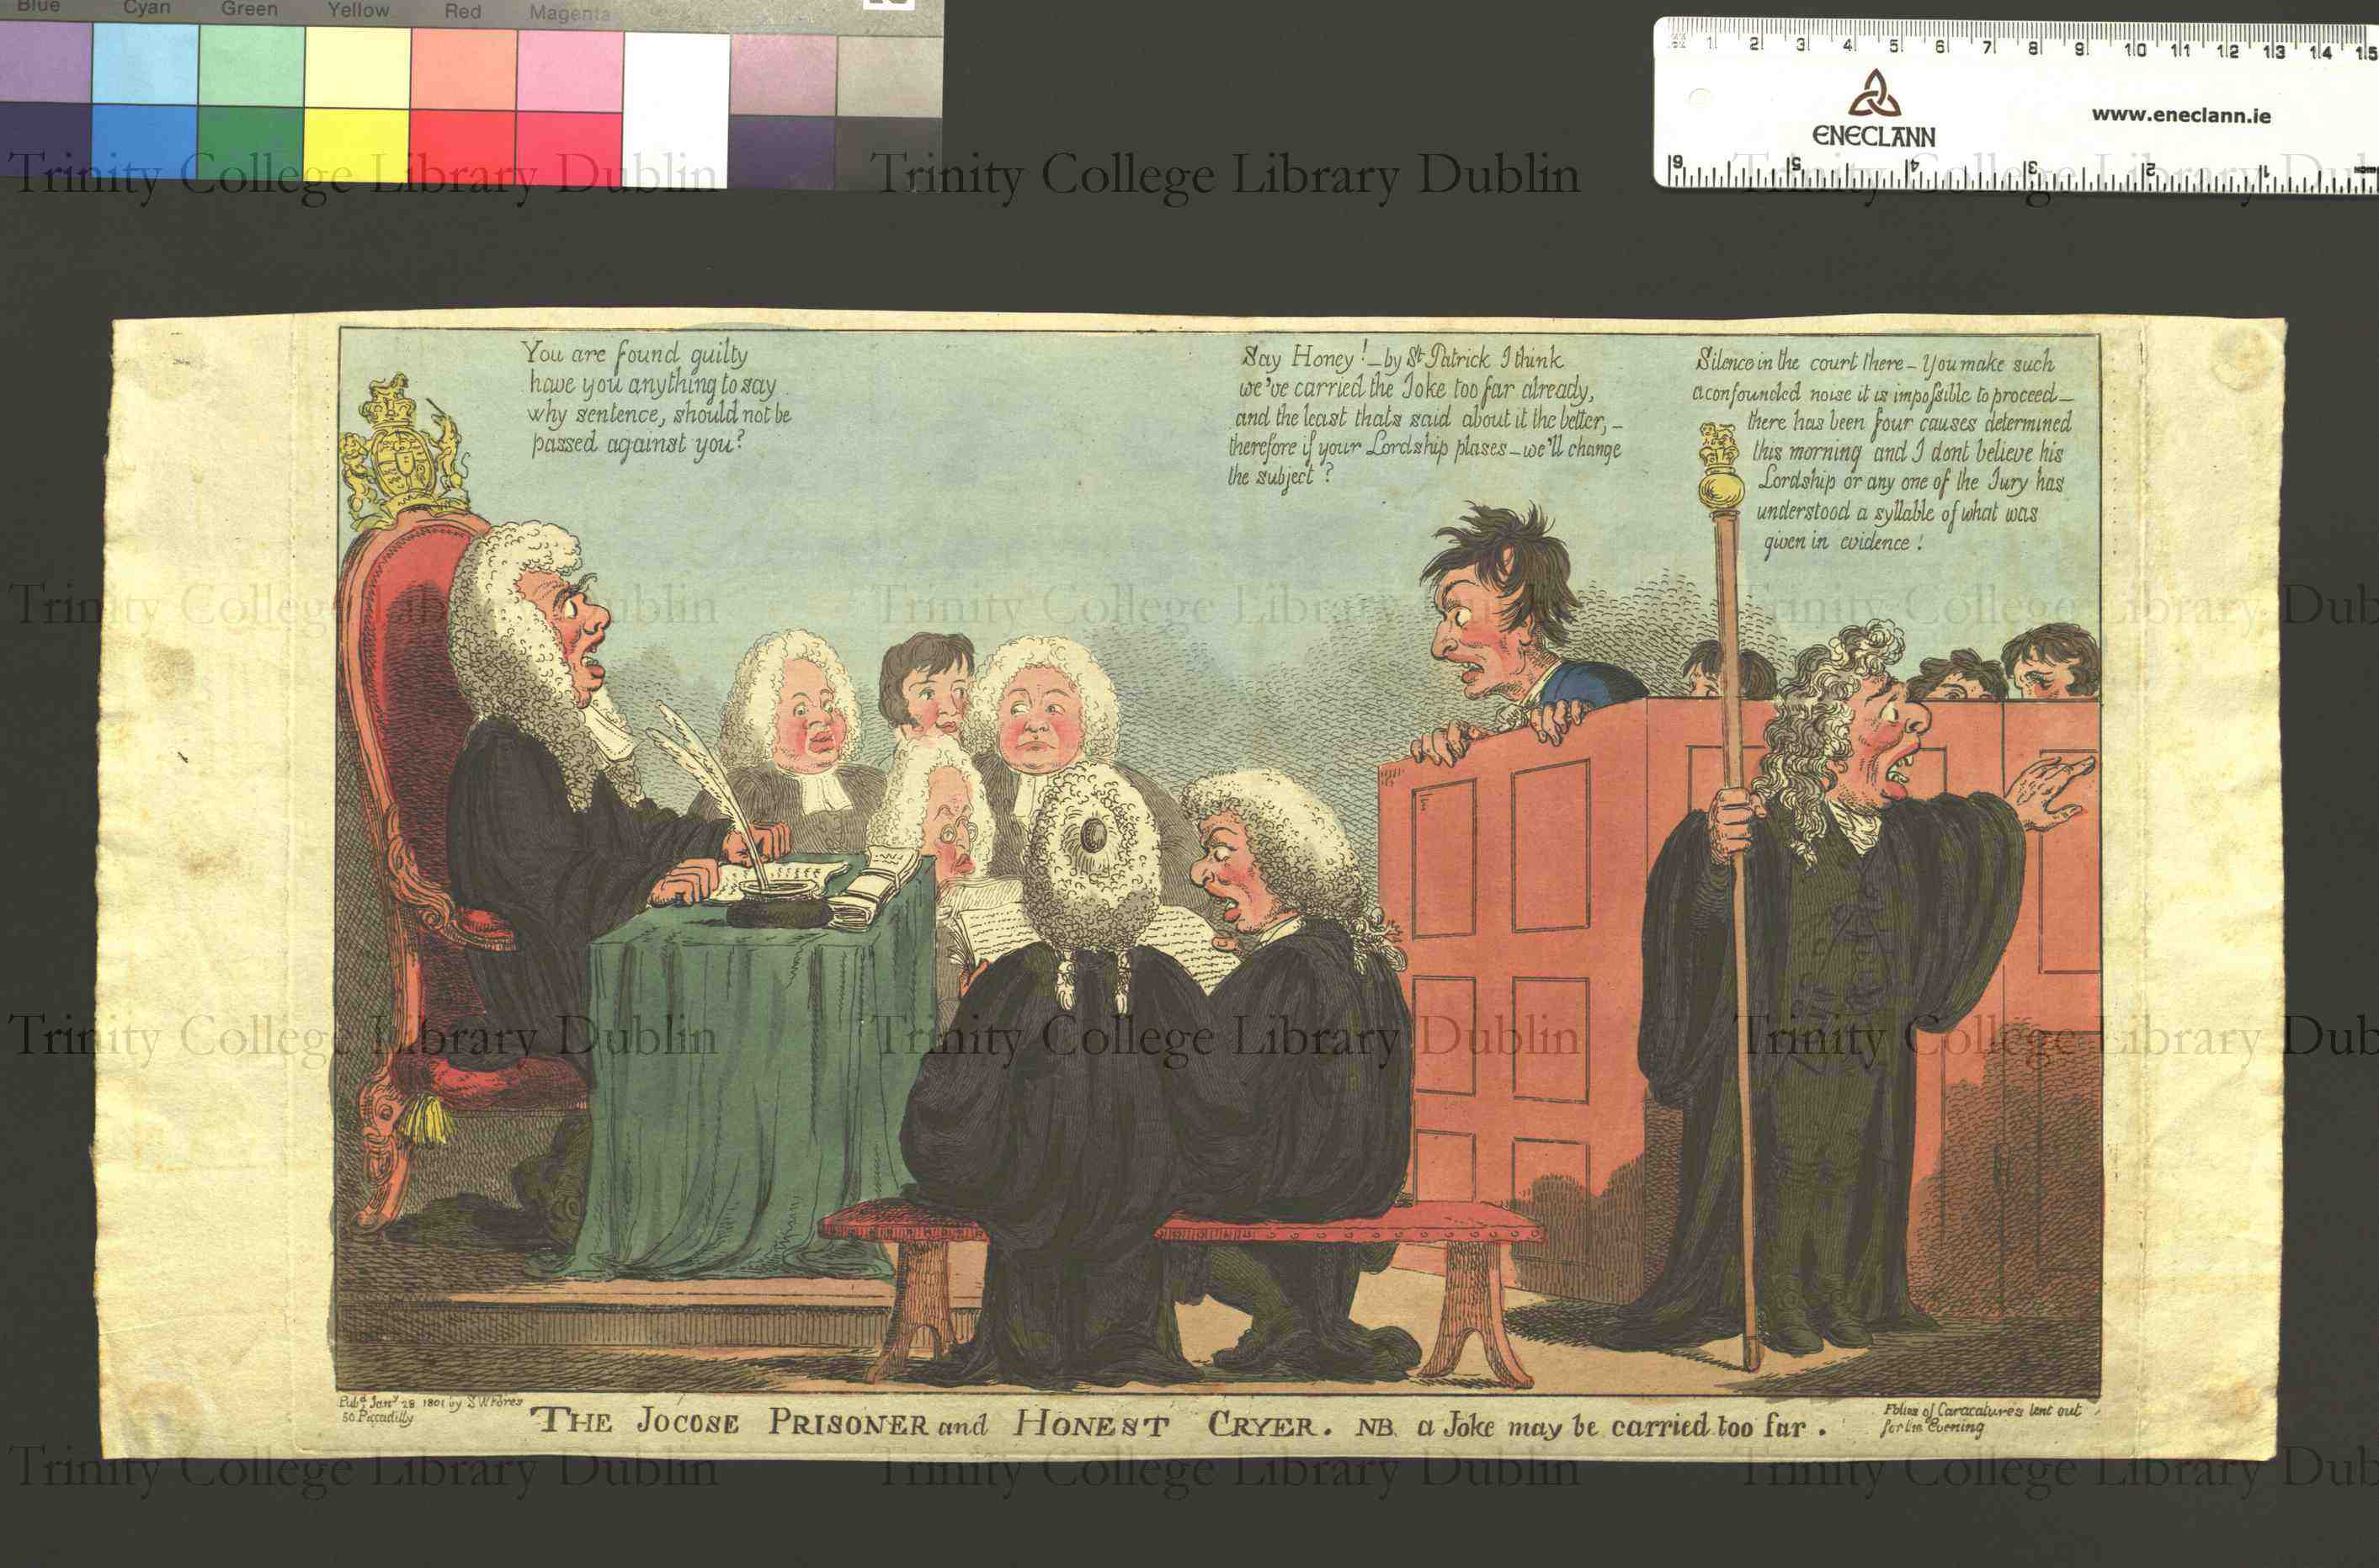 Blue Cyan Green Yellow Red Magenta
1 2 3 4 5 6 7 8 9 10 11 12 13 14 15
ENECLANN
www.eneclann.ie
6 5 4 3 2 1
Trinity College Library Dublin Trinity College Library Dublin Trinity College Library Dub
You are found guilty
have you anything to say
why sentence, should not be
passed against you?
Say Honey!—by St Patrick I think
we've carried the Joke too far already,
and the least thats said about it the better,—
therefore if your Lordship plases—we'll change
the subject?
Silence in the court there—You make such
a confounded noise it is impoſsible to proceed—
there has been four causes determined
this morning and I dont believe his
Lordship or any one of the Jury has
understood a syllable of what was
given in evidence!
Trinity College Library Dublin Trinity College Library Dublin Trinity College Library Dub
Trinity College Library Dublin Trinity College Library Dublin Trinity College Library Dub
Pubd Jany 28 1801 by S W Fores
50 Piccadilly
THE JOCOSE PRISONER and HONEST CRYER. NB. a Joke may be carried too far.
Folios of Caracatures lent out
for the Evening
Trinity College Library Dublin Trinity College Library Dublin Trinity College Library Dub